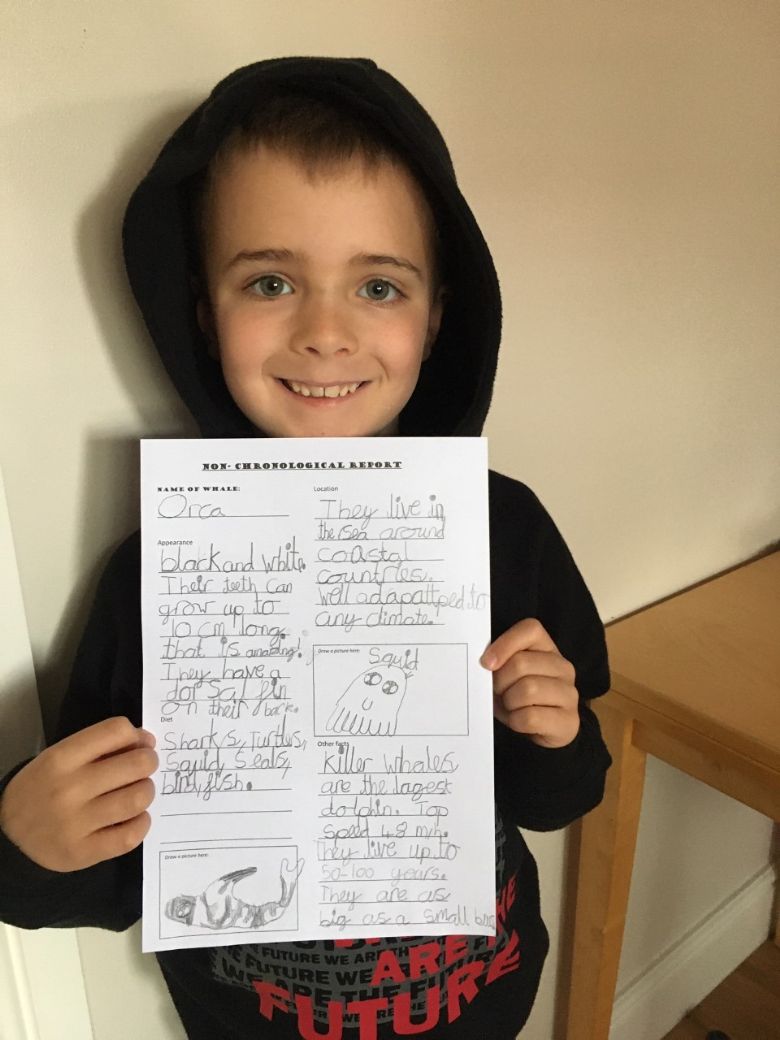 NON- CHRONOLOGICAL REPORT
NAME OF WHALE:
Orca
Appearance
black and white.
Their teeth can
grow up to
10 cm long.
that is amazing!
They have a
dorsal fin
on their back.
Diet
Sharks, Turtles,
Squid, Seals,
bird, fish.
Draw a picture here:
Location
They live in
the sea around
coastal
countries.
well adapattped to
any climate.
Draw a picture here:
Squid
Other facts
Killer whales
are the lagest
dolphin. Top
speed 48 m/h.
They live up to
50-100 years.
They are as
big as a small
FUTURE WE ARE THE
THE FUTURE WE ARE
WE ARE THE FUTURE
FUTURE